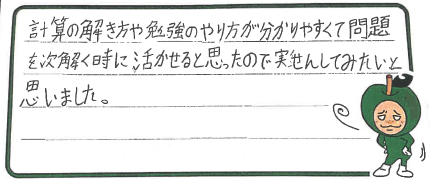 計算の解き方や勉強のやり方が分かりやすくて問題
を次解く時に活かせると思ったので実せんしてみたいと
思いました。